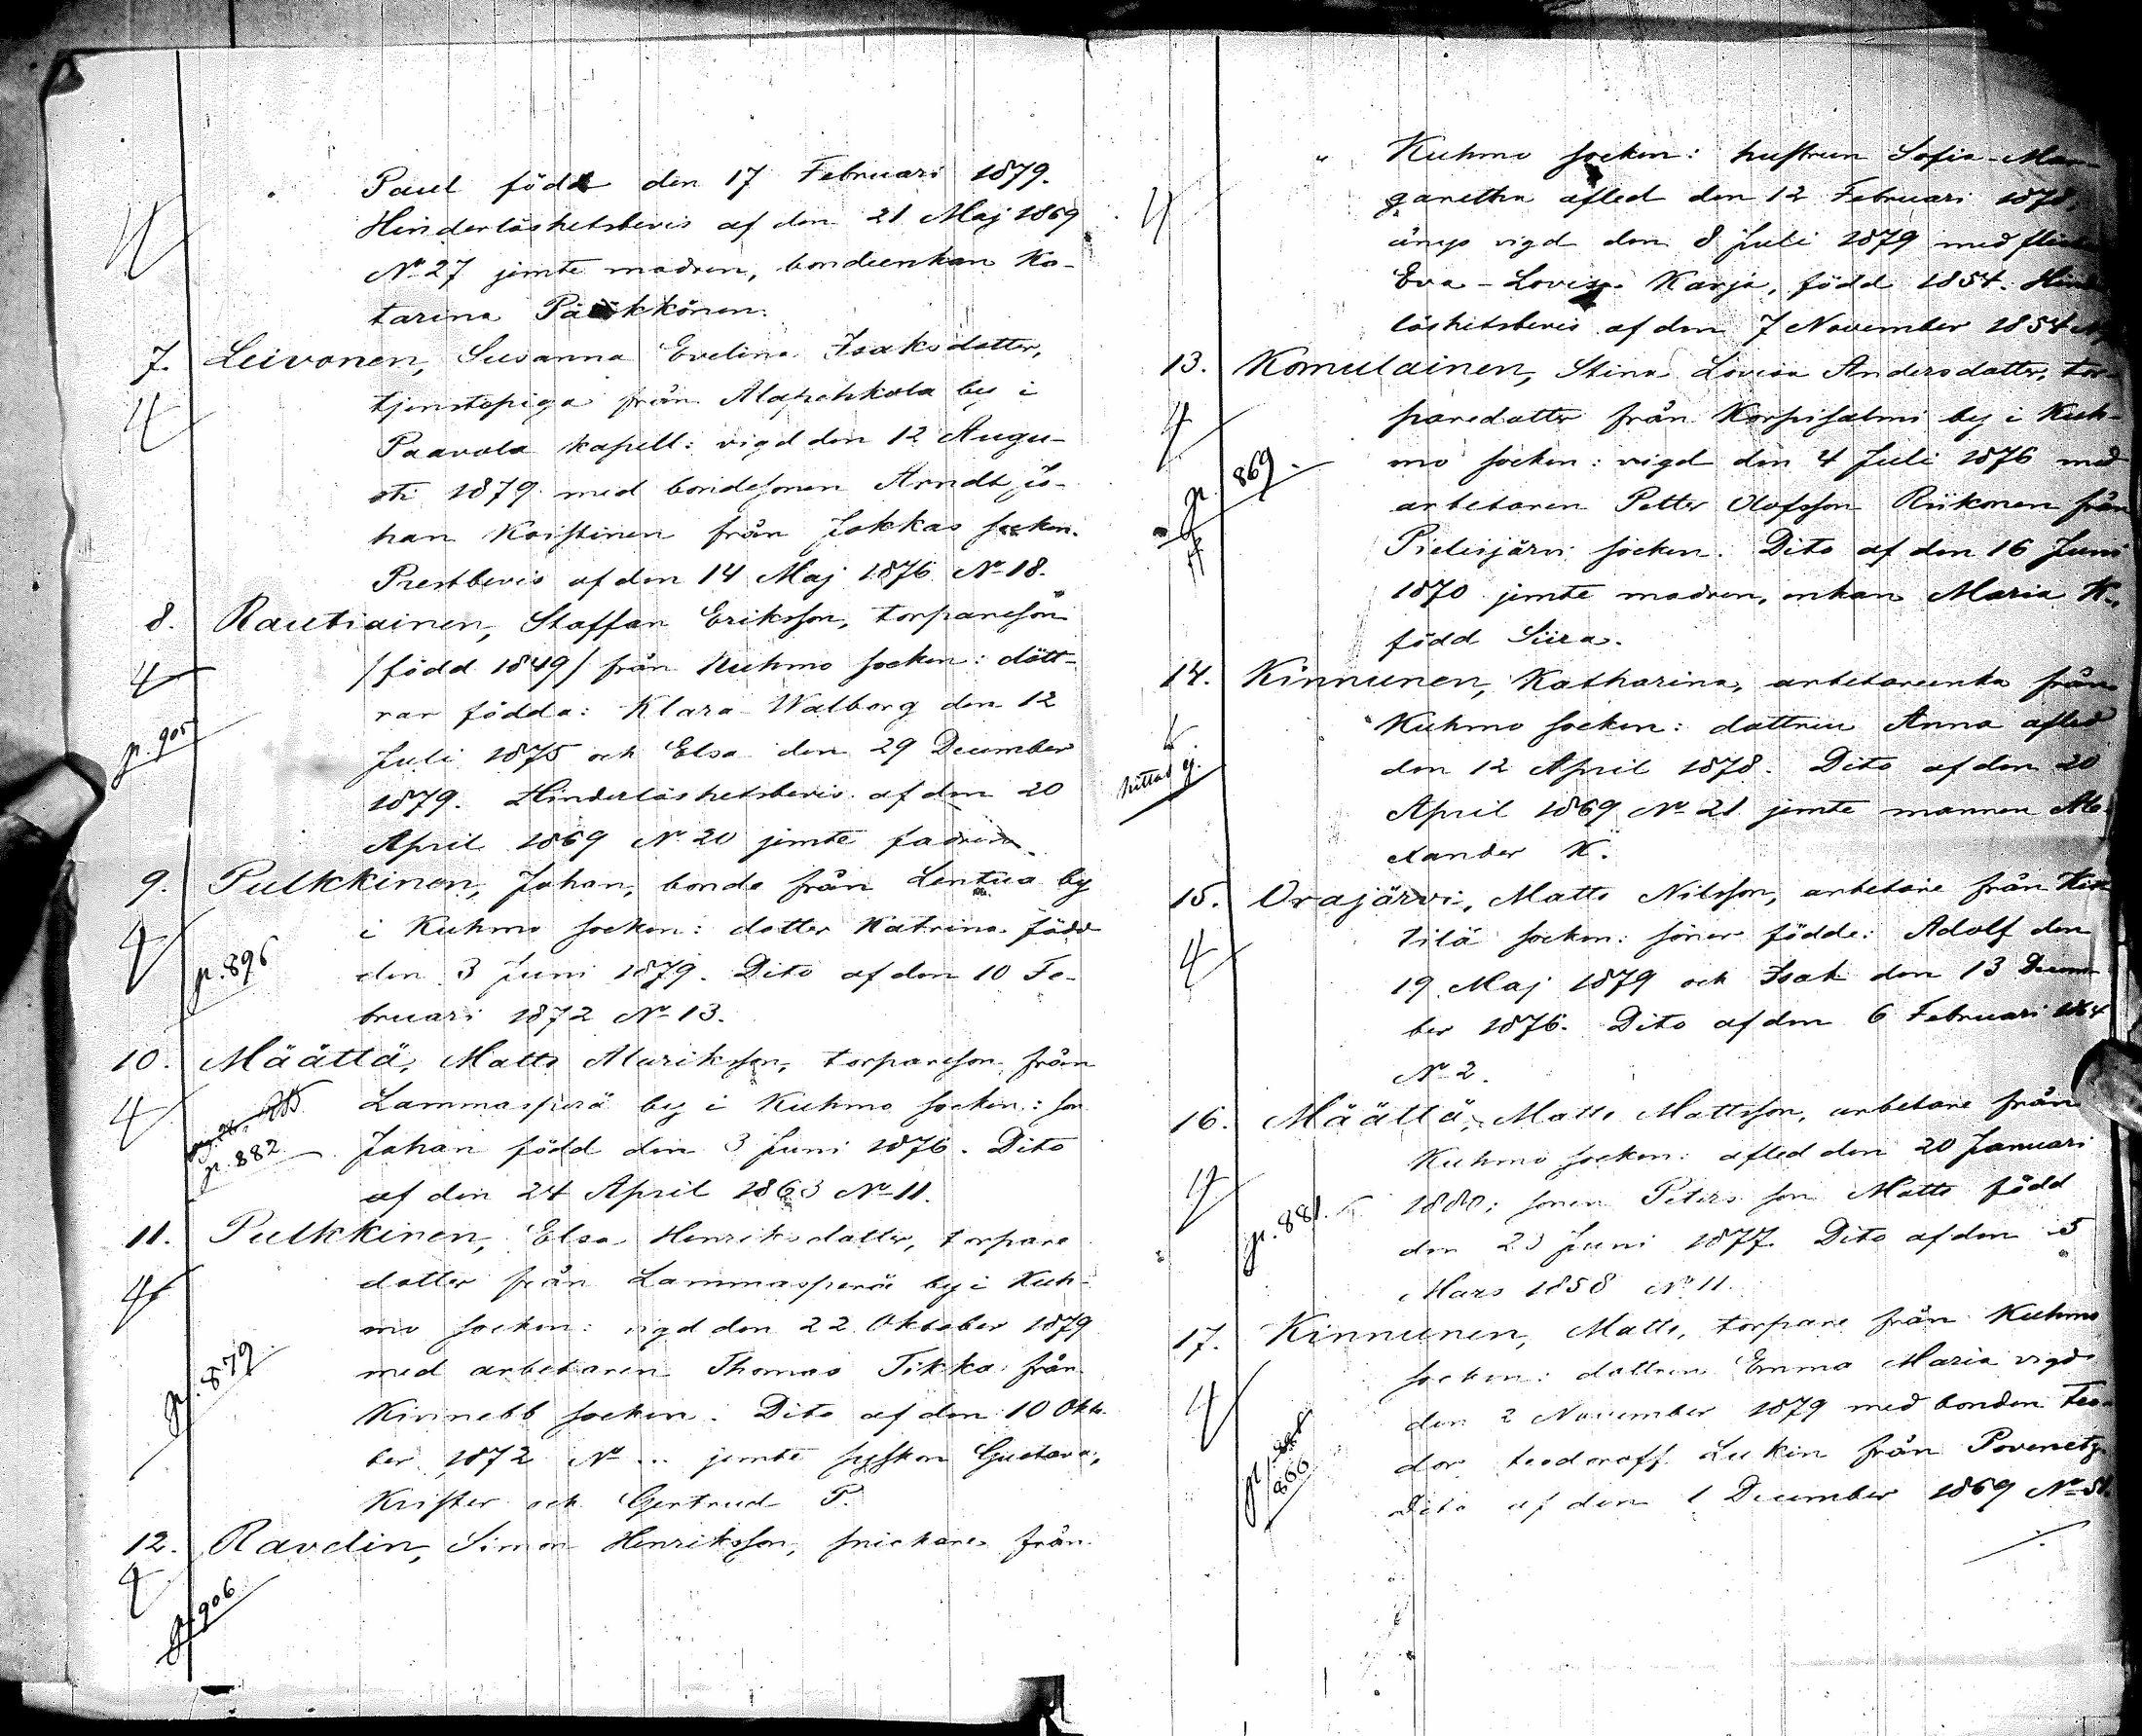 Paul född den 17 Februari 1879.
Hinderlöshetsbevis af den 21 Maj 1869
No 27 jemte modren, bondeenkan Ka-
tarina Pääkkönen.
7. Leivonen, Susanna Evelina Isaksdotter,
tjenstepiga från Alapehkola by i
Paavola kapell: vigd den 12 Augu-
sti 1879 med bondesonen Arndt Jo-
han Koistinen från Jokkas socken.
Prestbevis af den 14 Maj 1876 No 18.
8. Rautiainen, Staffan Eriksson, torpareson
/född 1849/ från Kuhmo socken: dött-
rar födda: Klara Walborg den 12
p. 905
Juli 1875 och Elsa den 29 December
1879. Hinderlöshetsbevis af den 20
April 1869 No 20 jemte fadren.
9. Pulkkinen, Johan, bonde från Lentua by
i Kuhmo socken: dotter Katrina född
p. 896
den 3 Juni 1879. Dito af den 10 Fe-
bruari 1872 No 13.
10. Määttä, Matts Mariksson, torpareson från
Lammasperä by i Kuhmo socken: son
p. 882
Johan född den 3 Juni 1876. Dito
af den 24 April 1863 No 11.
11. Pulkkinen, Elsa Henriksdotter, torpare
dotter från Lammasperä by i Kuh-
mo socken: vigd den 22 Oktober 1879
p. 879
med arbetaren Thomas Tikka från
Kivinebb socken. Dito af den 10 Okto-
ber 1872 No ... jemte syskon Gustava,
Krister och Gertrud P.
12. Ravelin, Simon Henriksson, snickare från
p. 906
" Kuhmo socken: hustrun Sofia-Mar-
garetha afled den 12 Februari 1878,
ånyo vigd den 8 Juli 1879 med
Eva-Lovisa Karja, född 1854. Hinder
löshetsbevis af den 7 November 1854
13. Komulainen, Stina Lovisa Andersdotter, tor-
paredotter från Korpisalmi by i Kuh-
p. 869.
mo socken: vigd den 4 Juli 1876 med
arbetaren Petter Olofsson Riikonen från
Pielisjärvi socken. Dito af den 16 Juni
1870 jemte modren, enkan Maria K.,
född Siira.
14. Kinnunen, Katharina, arbetareenka från
Kuhmo socken: dottren Anna afled
hittas ej.
den 12 April 1878. Dito af den 20
April 1869 No 21 jemte mannen Ale-
xander K.
15. Orajärvi, Matts Nilsson, arbetare från Kit
tilä socken: söner födde: Adolf den
19 Maj 1879 och Isak den 13 Decem-
ber 1876. Dito af den 6 Februari 1864
No 2.
16. Määttä, Matts Mattsson, arbetare från
Kuhmo socken: afled den 20 Januari
p. 881.
1880; sonen Peters son Matts född
den 23 Juni 1877. Dito af den 5
Mars 1858 No 11.
17. Kinnunen, Matts, torpare från Kuhmo
socken: dottren Emma Maria vigd
den 2 November 1879 med bonden Teo-
866
dor Teodoroff Lukin från Povenetz.
Dito af den 1 December 1869 No 51.